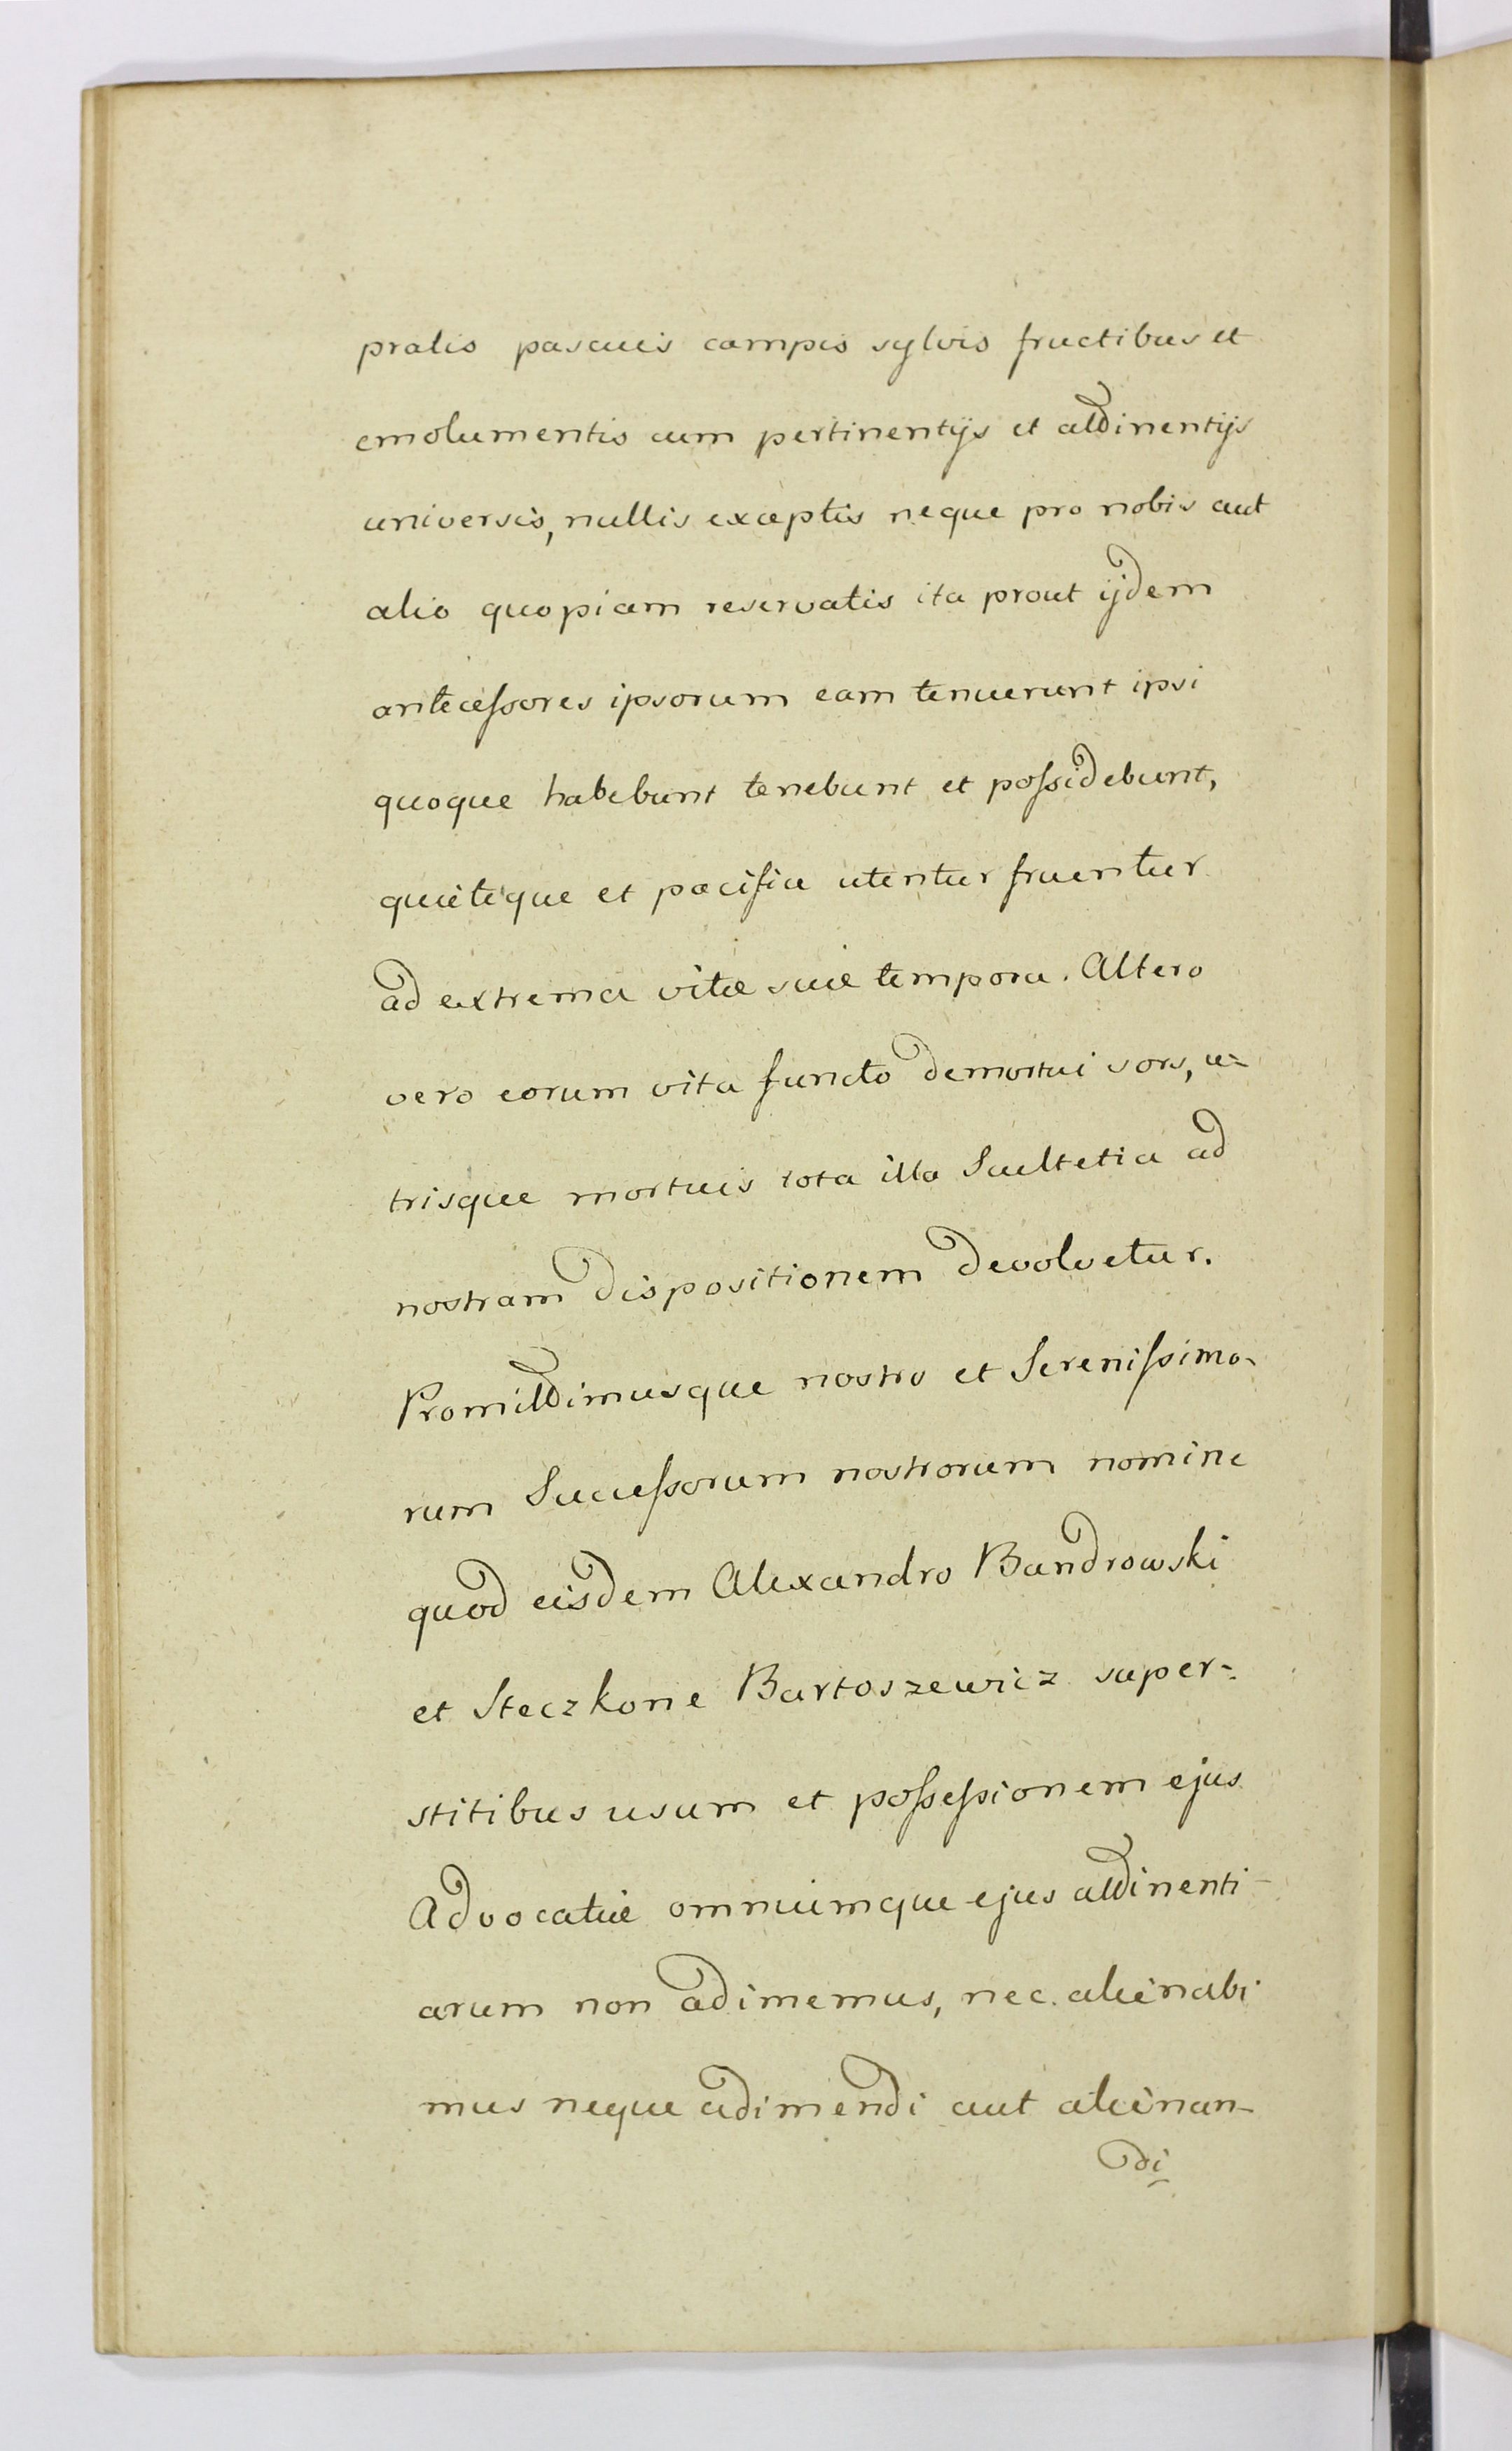 pratis pascuis campis sylvis fructibus et
emolumentis cum pertinentijs et attinentijs
universis, nullis exceptis neque pro nobis aut
alio quopiam reservatis ita prout ijdem
antecessores ipsorum eam tenuerunt ipsi
quoque habebunt tenebunt et possidebunt,
quieteque et pacifice utentur fruentur
ad extrema vitæ suæ tempora. Altero
vero eorum vita functo demortui sors, u=
trisque mortuis tota illa Scultetia ad
nostram dispositionem devolvetur.
Promittimusque nostro et Serenissimo-
rum Successorum nostrorum nomine
quod eisdem Alexandro Bandrowski
et Steczkone Bartoszewicz super=
stitibus usum et possessionem ejus
Advocatiæ omniumque ejus attinenti-
arum non adimemus, nec alienabi
mus neque adimendi aut alienan-
di